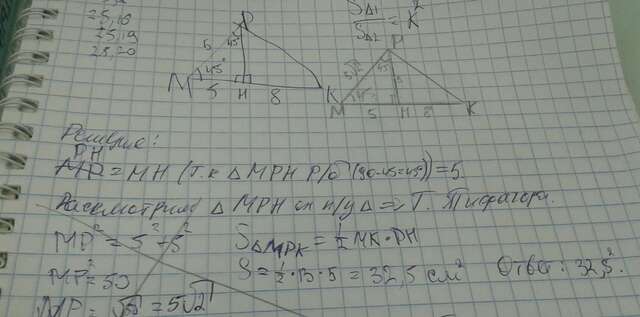 25,16
25,19
28,20
SΔ1/SΔ2 = K²
P
45°
6
M 45° 5 H 8 K
P
5√2 45° 5
M 45° 5 H 8 K
Решение:
PH = MH (т.к Δ MPH р/б (90-45=45)) = 5.
Рассмотрим Δ MPH он п/у Δ => Т. Пифагора.
MP² = 5² + 5²
MP² = 50
MP = √50 = 5√2
SΔMPK = ½ MK · PH
S = ½ · 13 · 5 = 32,5 см²
Ответ: 32,5.